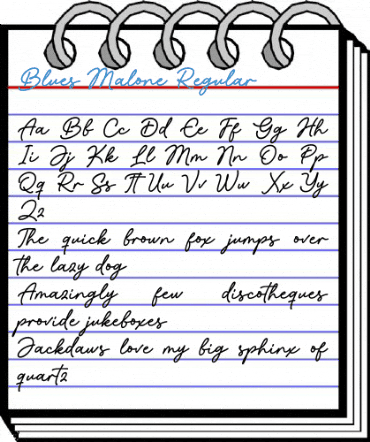 Blues Malone Regular
Aa Bb Cc Dd Ee Ff Gg Hh
Ii Jj Kk Ll Mm Nn Oo Pp
Qq Rr Ss Tt Uu Vv Ww Xx Yy
Zz
The quick brown fox jumps over
the lazy dog
Amazingly few discotheques
provide jukeboxes
Jackdaws love my big sphinx of
quartz